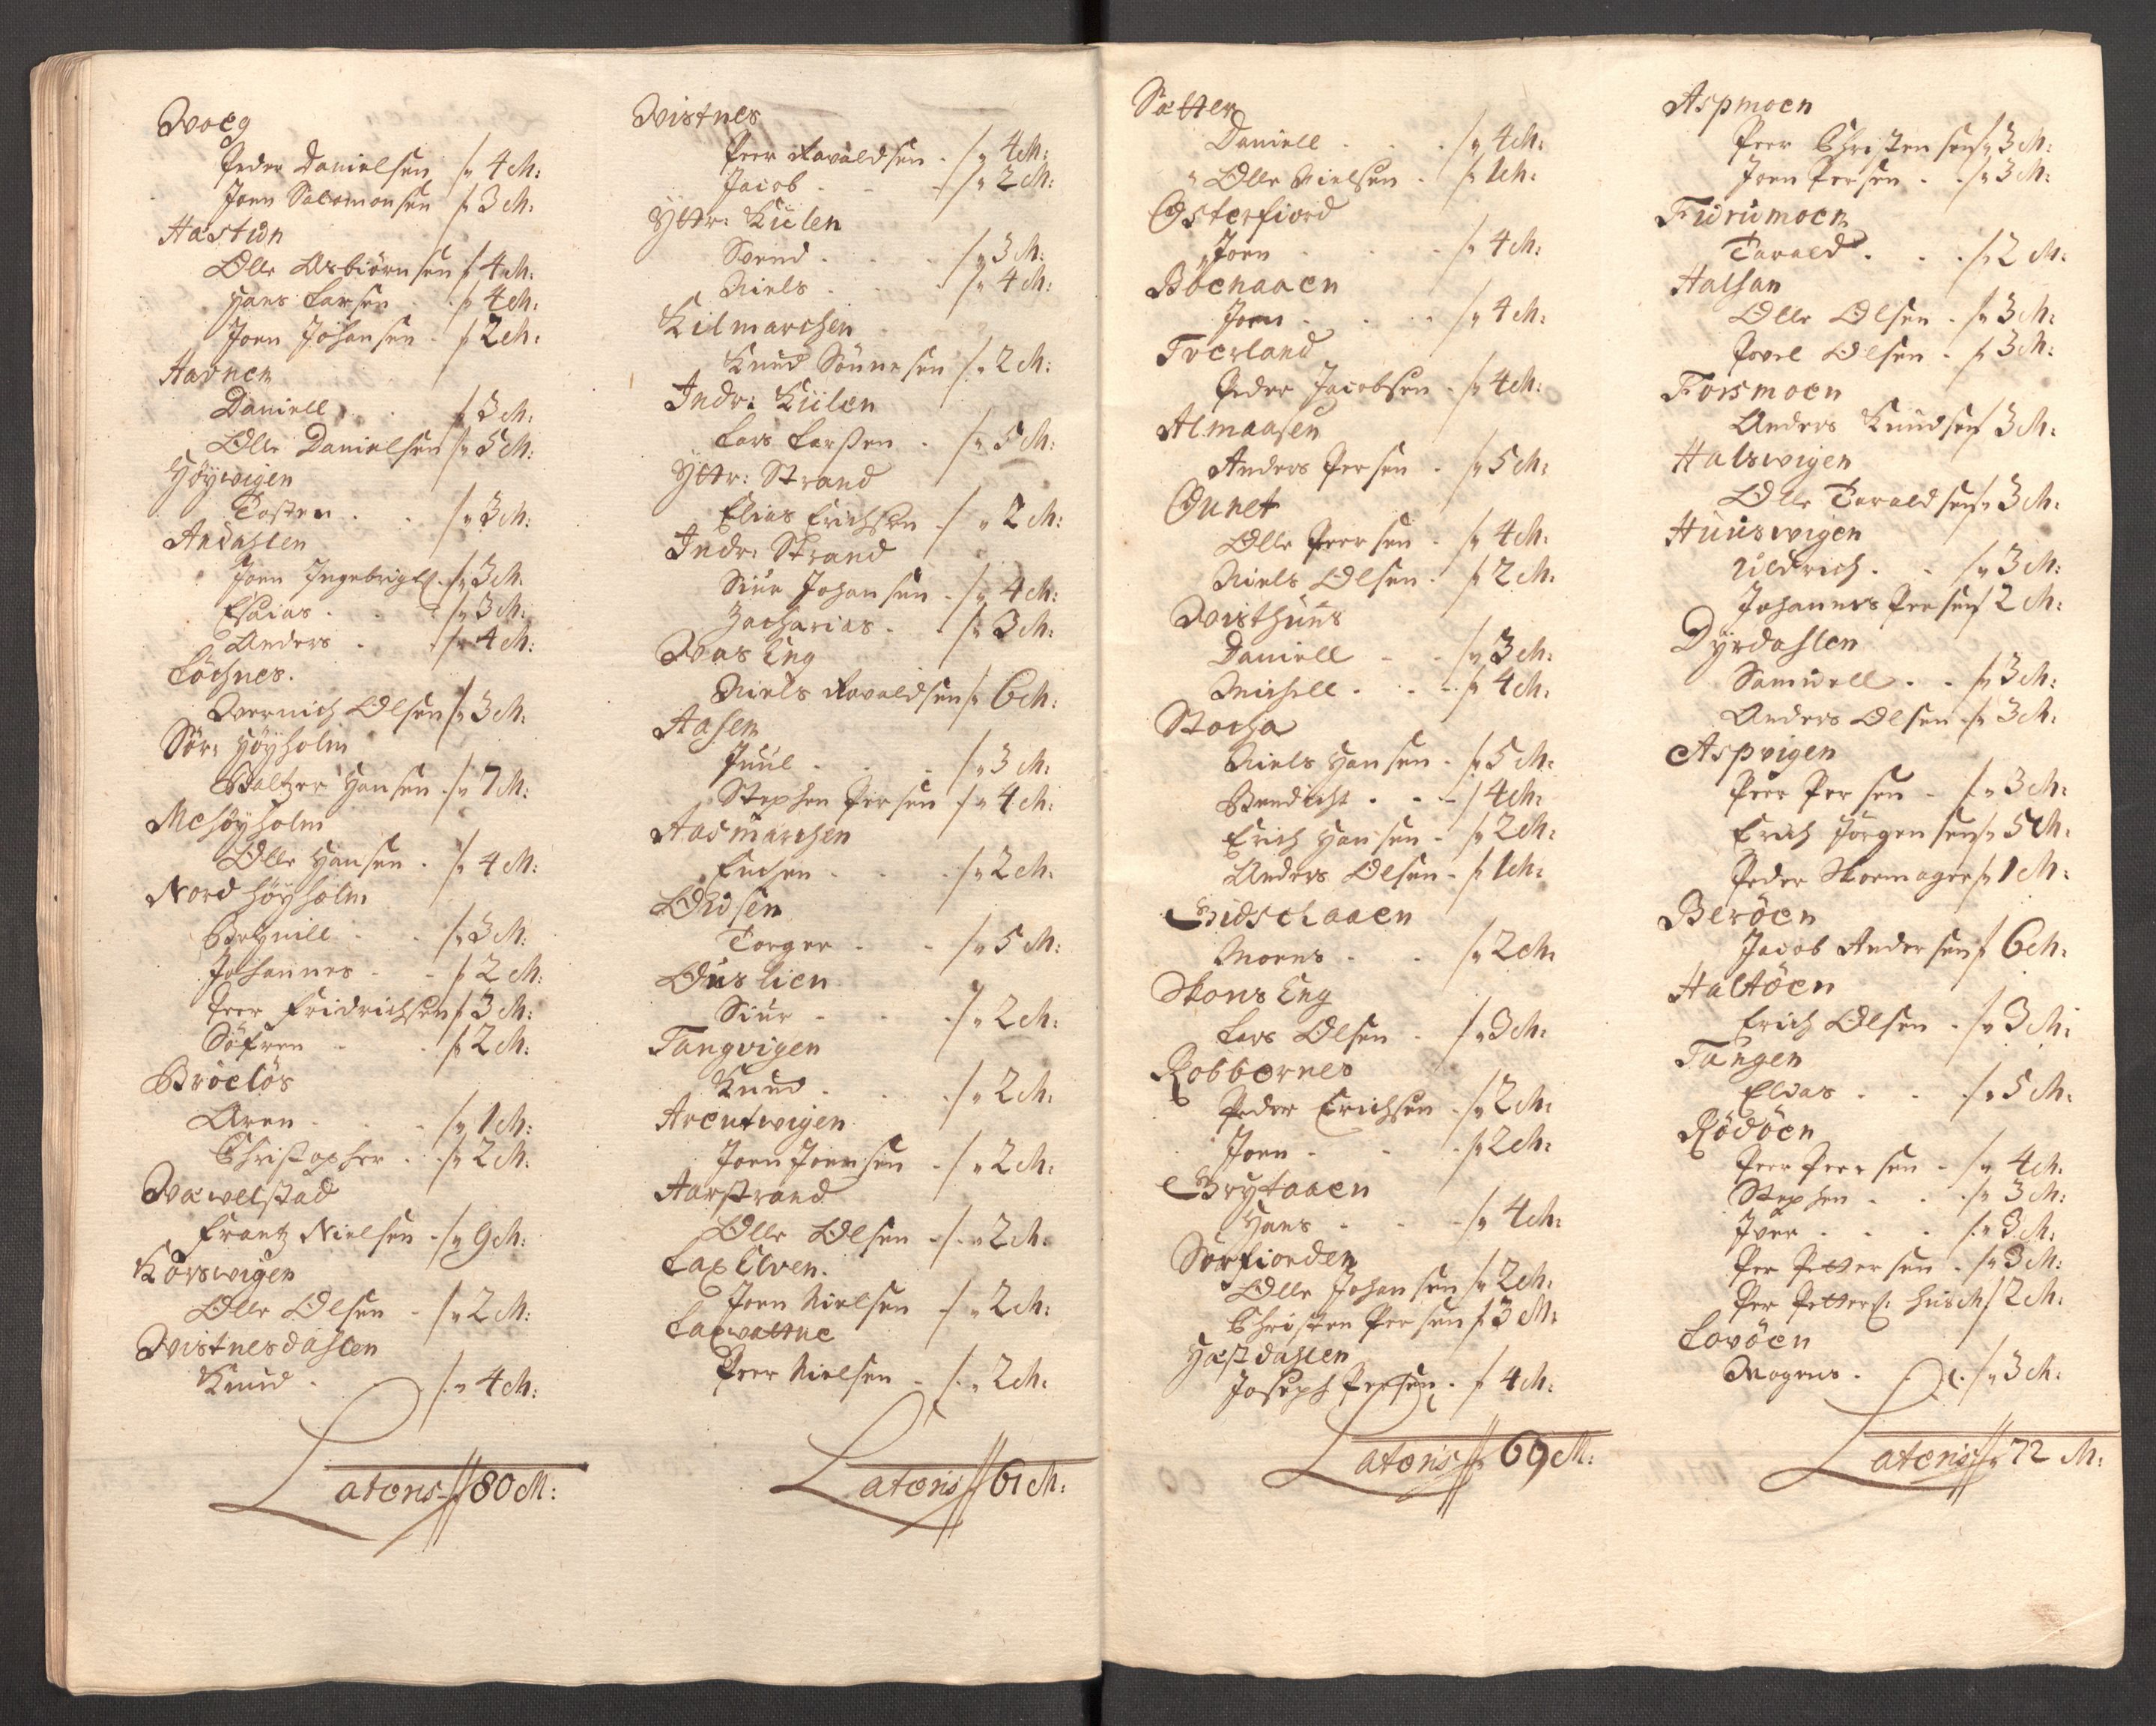 Woeg
Peder Danielsen /" 4 M:
Joen Salomonsen /" 3 M:
Hastun
Olle Asbiörnsen /" 4 M:
Hans Larsen . /" 4 M:
Joen Johansen . /" 2 M:
Hadnen
Daniell . . /" 3 M:
Olle Danielsen /" 5 M:
Höÿwigen
Tosten . . /" 3 M:
Andahlen
Joen Ingebrigts. /" 3 M:
Esaias . . /" 3 M:
Anders . . /" 4 M:
Löchnes.
Wernich Olsen /" 3 M:
Sör: Höÿholm
Baltzer Hansen . /" 7 M:
Mehöÿholm
Olle Hansen . /" 4 M:
Nord höÿholm
Bognill . . /" 3 M:
Johannes . . /" 2 M:
Peer Fridrichsen /" 3 M:
Söfren . . /" 2 M:
Bröclös
Aren . . . /" 1 M:
Christopher . . /" 2 M:
Wæwelstad
Frantz Nielsen . /" 9 M:
Korswigen
Olle Olsen . /" 2 M:
Wistnesdahlen
Knud . . . /" 4 M:
Lateris // 80 M:
Wistnes
Peer Ravaldsen . /" 4 M:
Jacob . . . /" 2 M:
Ÿttr: Kiilen
Svend . . . /" 3 M:
Niels . . . /" 4 M:
Kilmarchen
Knud Sönnesen /" 2 M:
Indr: Kiilen
Lars Larsen . /" 5 M:
Ÿttr: Strand
Elias Erichsen . /" 2 M:
Indr: Strand
Siur Johansen . /" 4 M:
Zacharias . . /" 3 M:
Was Eng
Niels Ravaldsen /" 6 M:
Aasen
Juul . . . /" 3 M:
Stephen Persen . /" 4 M:
Aasmarchen
. . . /" 2 M:
Odsen
Torger . . /" 5 M:
Ouslien
Siur . . . /" 2 M:
Tangvigen
Knud . . . /" 2 M:
Areutwigen
Joen Joensen . /" 2 M:
Aarstrand
Olle Olsen . /" 2 M:
Lax Elven.
Joen Nielsen . /" 2 M:
Laxvattne
Peer Nielsen . /" 2 M:
Lateris // 61 M:
Sætter
Daniell . . /" 4 M:
" Olle Nielsen . /" 1 M:
Osterfiord
Joen . . . /" 4 M:
Böenaaen
Joen . . . /" 4 M:
Tverland
Peder Jacobsen . /" 4 M:
Almaasen
Anders Persen . /" 5 M:
Ounet
Olle Peersen . /" 4 M:
Niels Olsen . /" 2 M:
Wisthuus
Daniell . . /" 3 M:
Michell . . . /" 4 M:
Stocha
Niels Hansen . /" 5 M:
Bendicht . . . / 4 M:
Erich Hansen . /" 2 M:
Anders Olsen . /" 1 M:
Moens . . /" 2 M:
Skons Eng
Lars Olsen . /" 3 M:
Robbernes
Peder Erichsen . /" 2 M:
Joen . . . /" 2 M:
Brÿtaaen
Hans . . . /" 4 M:
Sörfiorden
Olle Johansen /" 2 M:
Christen Persen /" 3 M:
Hæstdahlen
Joseph Persen . /" 4 M:
Lateris // 69 M:
Aspmoen
Peer Christensen /" 3 M:
Joen Persen . . /" 3 M:
Furumoen
Tarald . . . /" 2 M:
Halsan
Olle Olsen . /" 3 M:
Povel Olsen . /" 3 M:
Forsmoen
Anders Knudsen / 3 M:
Halswigen
Olle Taraldsen /" 3 M:
Huuswigen
Uldrich . . /" 3 M:
Johannes Persen / 2 M:
Dÿrdahlen
Samuell . . /" 3 M:
Anders Olsen . /" 3 M:
Aspvigen
Peer Persen . /" 3 M:
Erich Jörgensen /" 5 M:
Peder Skoemager /" 1 M:
Beröen
Jacob Andersen / 6 M:
Haltöen
Erich Olsen . /" 3 M:
Tangen
Elias . . /" 5 M:
Rödöen
Peer Peersen . /" 4 M:
Stephen . . /" 3 M:
Iver . . . /" 3 M:
Per Pettersen . /" 3 M:
Per Petters: husm / 2 M:
Lovöen
Mogens . . . /" 3 M:
Lateris // 72 M: